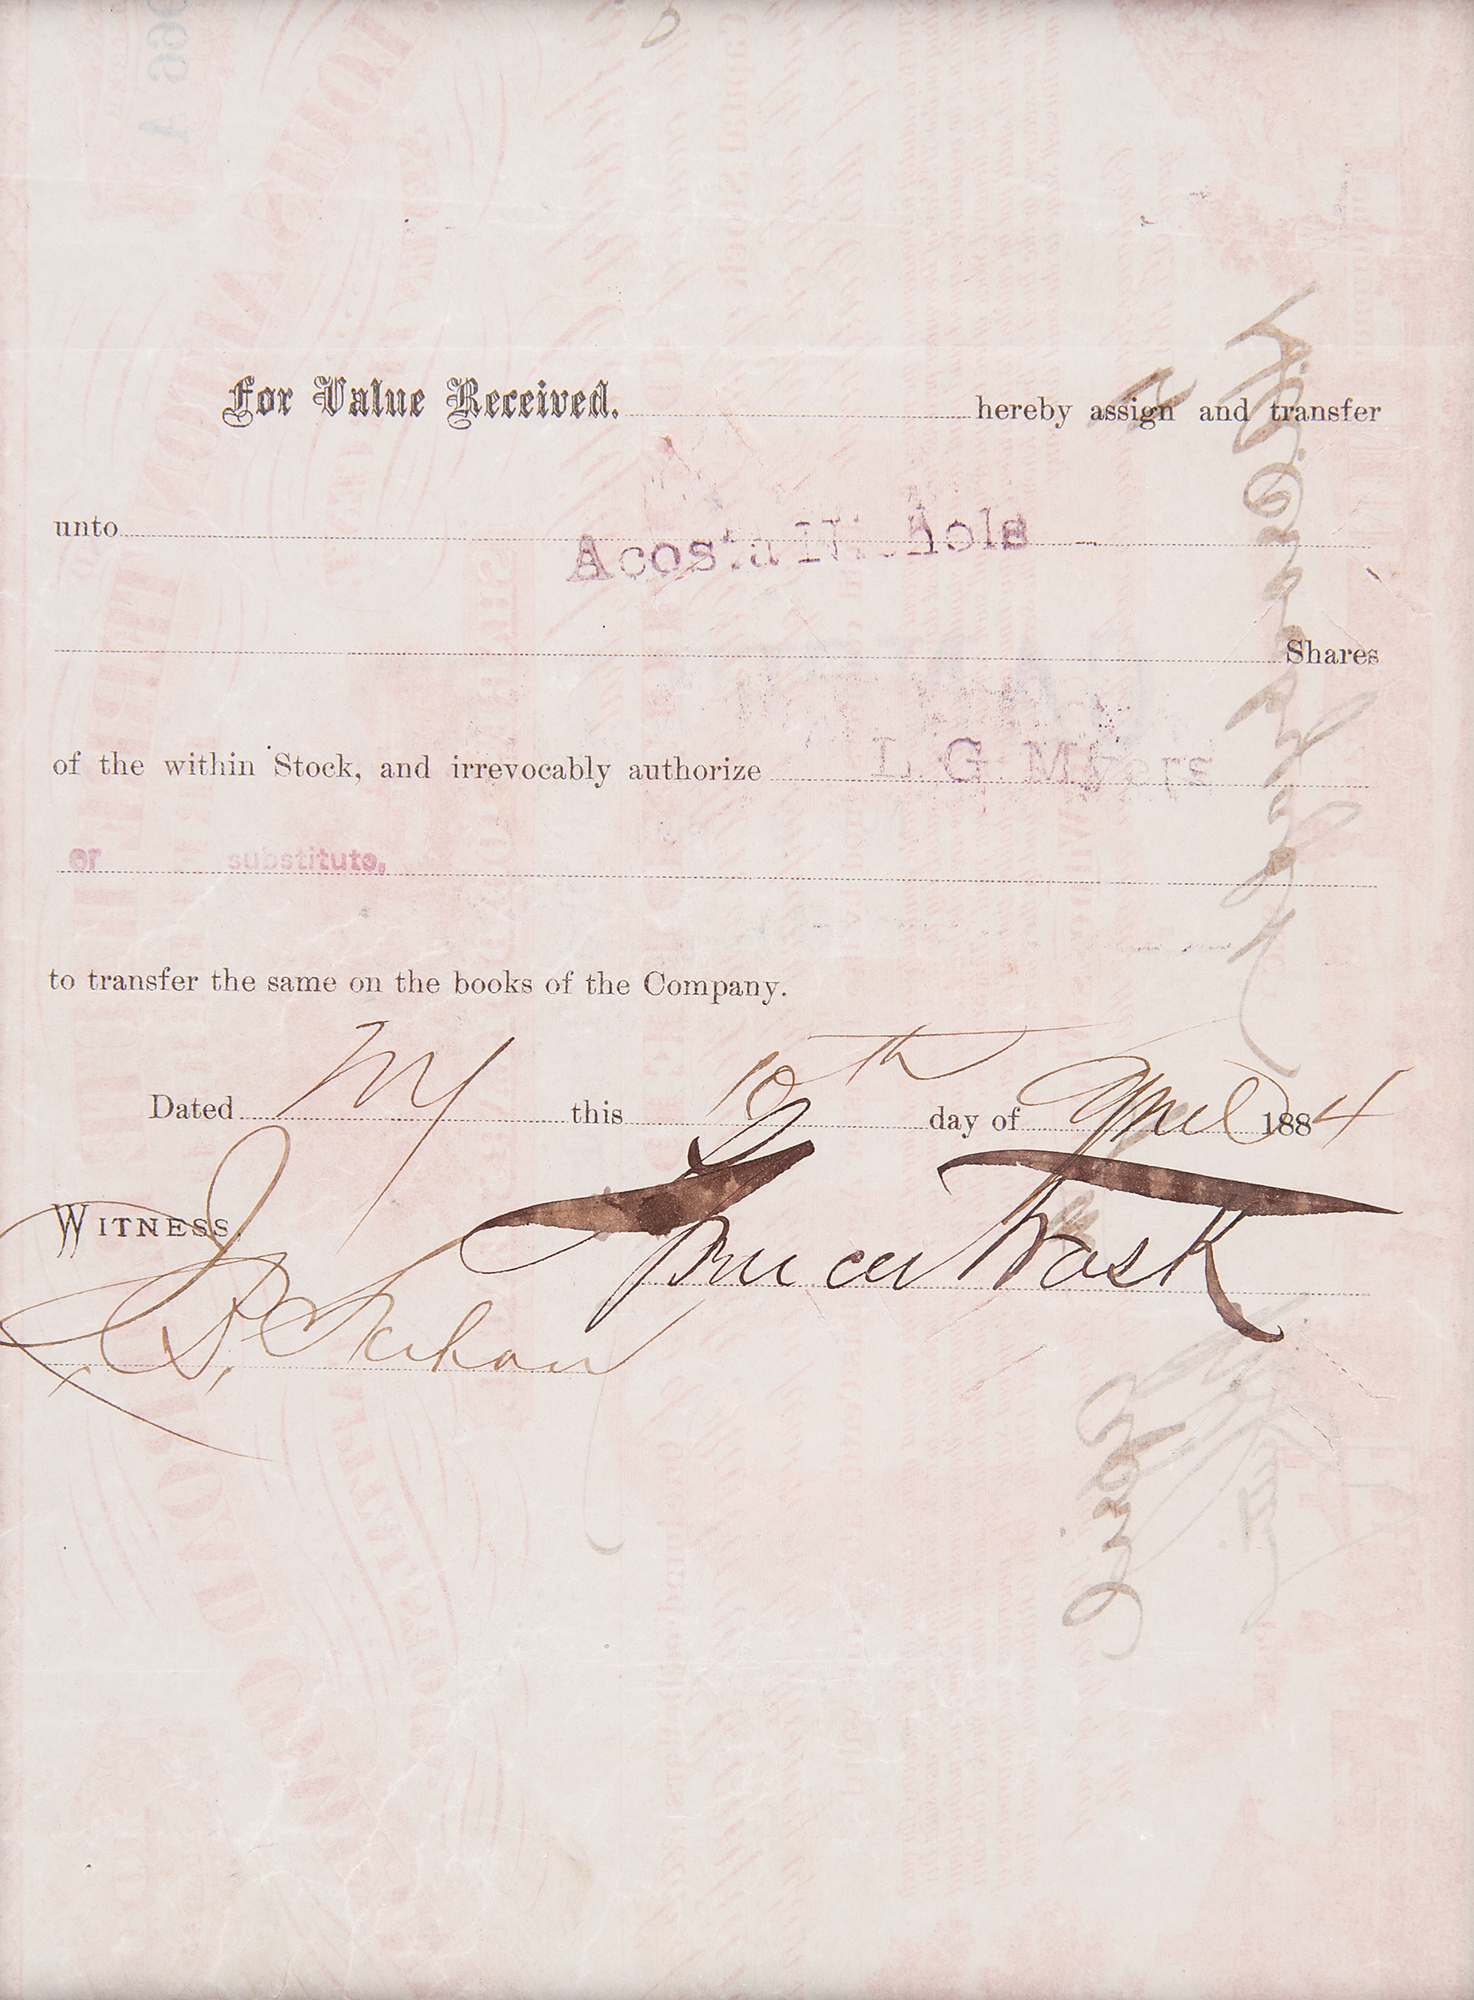 For Value Received. hereby assign and transfer
unto Acosta Nichols
Shares
of the within Stock, and irrevocably authorize L G Myers
or substitute,
to transfer the same on the books of the Company.
Dated NY this 10th day of April 1884
WITNESS,
Spencer Trask